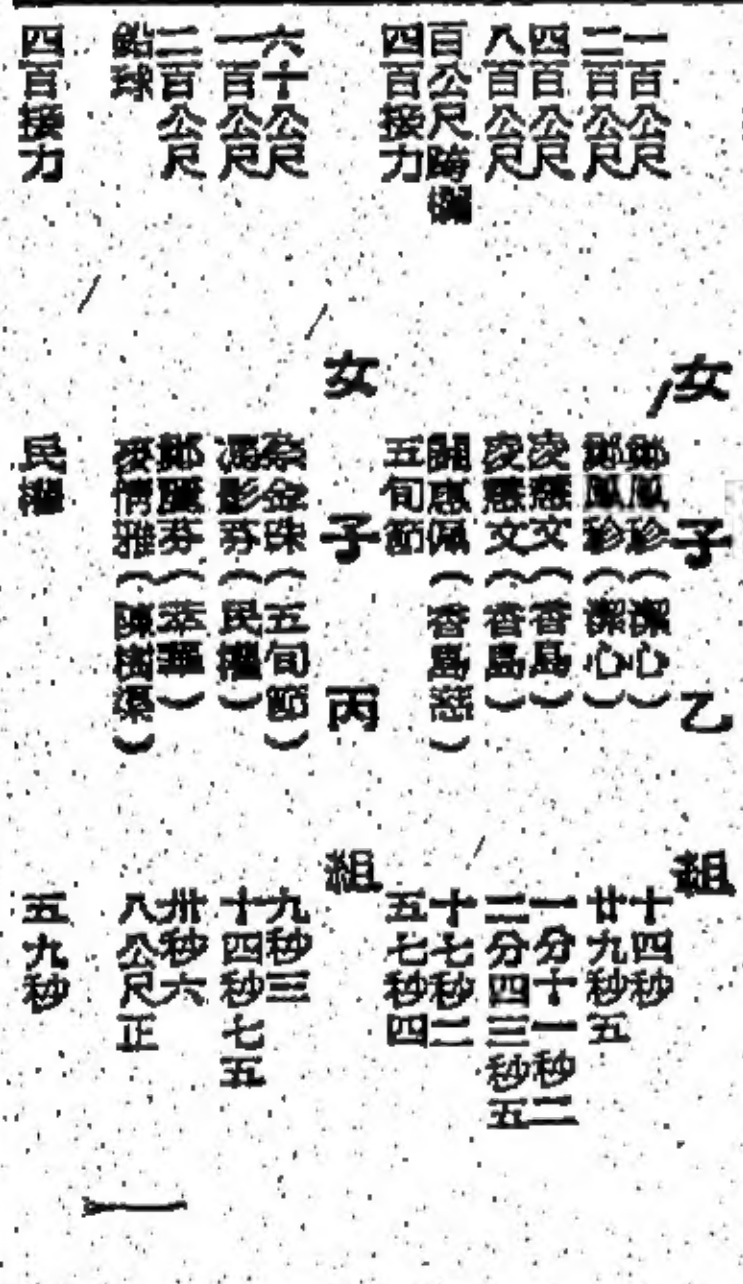 女子乙組
一百公尺 鄭鳳珍（潔心） 十四秒
二百公尺 鄭鳳珍（潔心） 廿九秒五
四百公尺 凌慈文（香島） 一分十一秒二
八百公尺 凌慈文（香島） 二分四三秒五
百公尺跨欄 惠佩（香島） 十七秒二
四百接力 五旬節 五七秒四
女子丙組
六十公尺 蔡金珠（五旬節） 九秒三
一百公尺 馮影芬（民權） 十四秒七五
二百公尺 鄭芬（萃華） 卅秒六
鉛球 情雅（陳樹渠） 八公尺正
四百接力 民權 五九秒